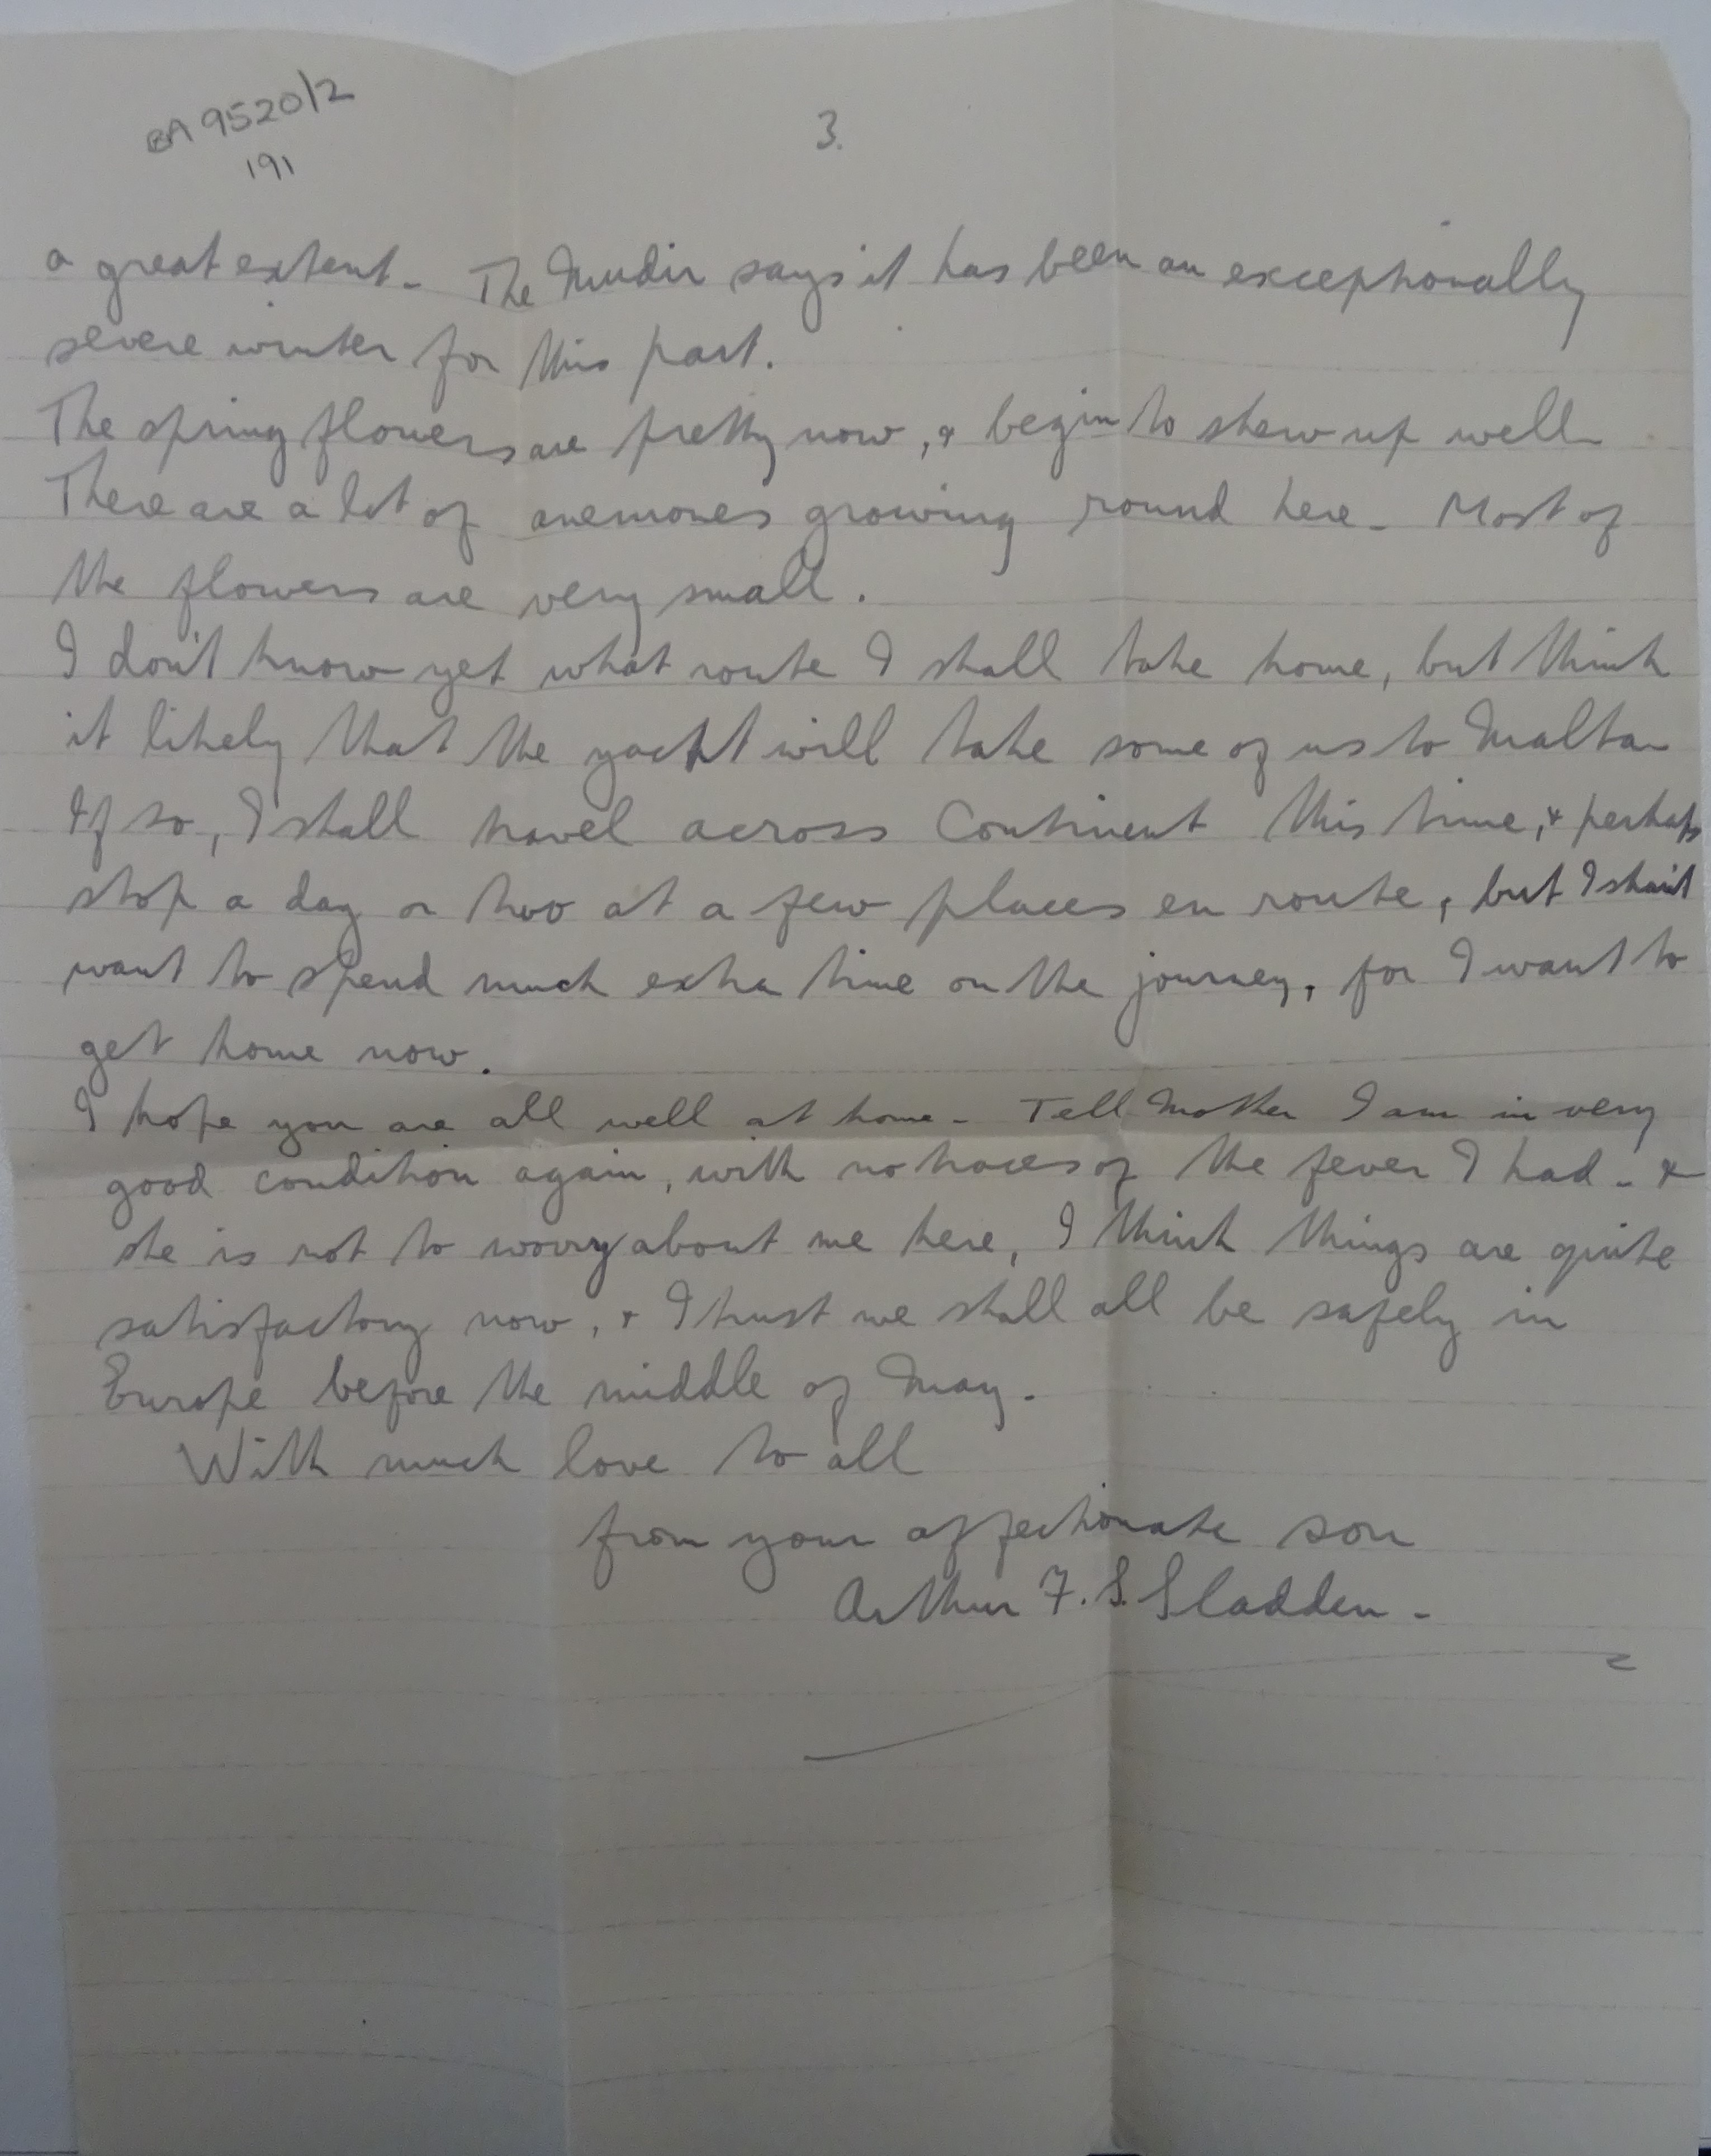 BA 9520/2
191
3.
a great extent - The Mudir says it has been an exceptionally
severe winter for this part.
The spring flowers are pretty now, & begin to shew up well
There are a lot of anemones growing round here - Most of
the flowers are very small.
I don't know yet what route I shall take home, but think
it likely that the yacht will take some of us to Malta
If so, I shall travel across Continent this time, & perhaps
stop a day or two at a few places en route, but I shan't
want to spend much extra time on the journey, for I want to
get home now.
I hope you are all well at home - Tell Mother I am in very
good condition again, with no traces of the fever I had - &
she is not to worry about me here, I think things are quite
satisfactory now, & I trust we shall all be safely in
Europe before the middle of May.
With much love to all
from your affectionate son
Arthur F. S. Sladden -